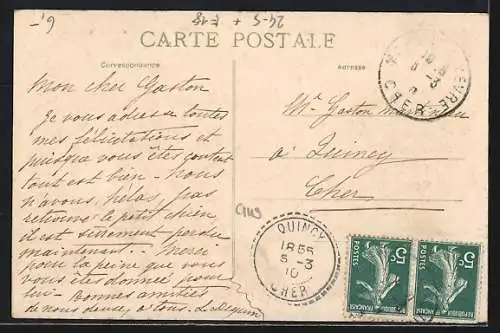 6'-
24-5 + E 18
CARTE POSTALE
Correspondance
Adresse
Mon cher Gaston
Je vous adresse toutes
mes félicitations et
puisque vous êtes content
tout est bien - Nous
n'avons, hélas, pas
retrouvé le petit chien,
il est sûrement perdu
maintenant - Merci
pour la peine que vous
vous êtes donnée pour
lui - Bonnes amitiés
de nous deux, à tous.
Mr Gaston
à Quincy
Cher
10-5
5-3
CHER
C1119
QUINCY
18 55
5-3
10
CHER
5c
POSTES
REPUBLIQUE FRANÇAISE
5c
POSTES
REPUBLIQUE FRANÇAISE